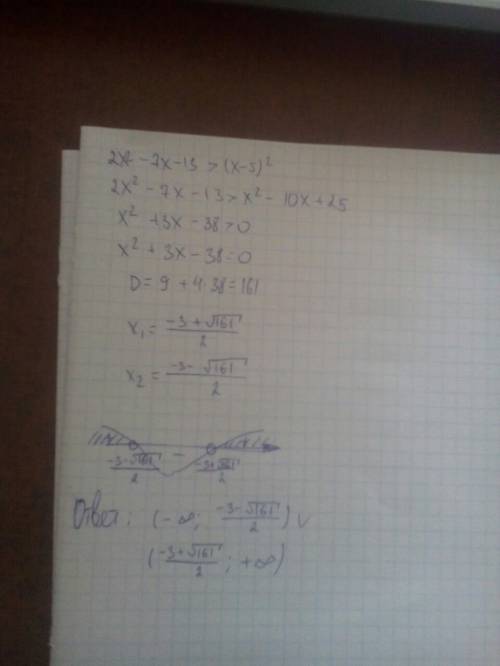 2x² - 7x - 13 > (x-5)²
2x² - 7x - 13 > x² - 10x + 25
x² + 3x - 38 > 0
x² + 3x - 38 = 0
D = 9 + 4·38 = 161
x₁ = (-3 + √161)/2
x₂ = (-3 - √161)/2
-
(-3-√161)/2 (-3+√161)/2
Ответ: (-∞; (-3-√161)/2) ∪
((-3+√161)/2; +∞)